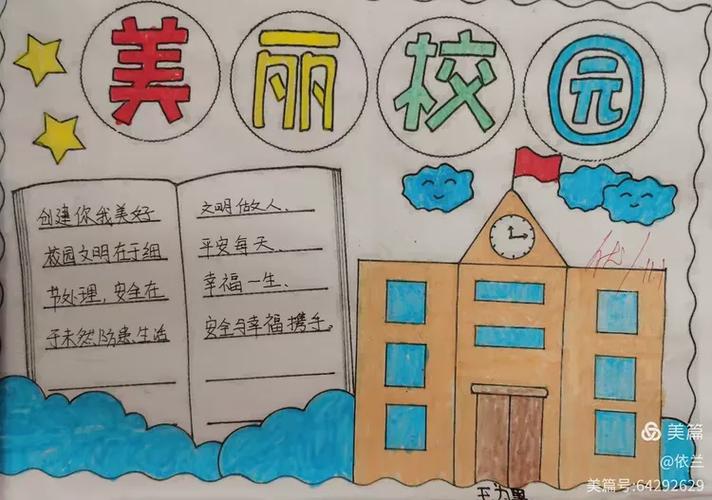 美丽校园
创建你我美好
校园文明在于细
节处理，安全在
于未然，防患、生活
文明做人、
平安每天、
幸福一生、
安全与幸福携手。
美篇
@依兰
美篇号:64292629